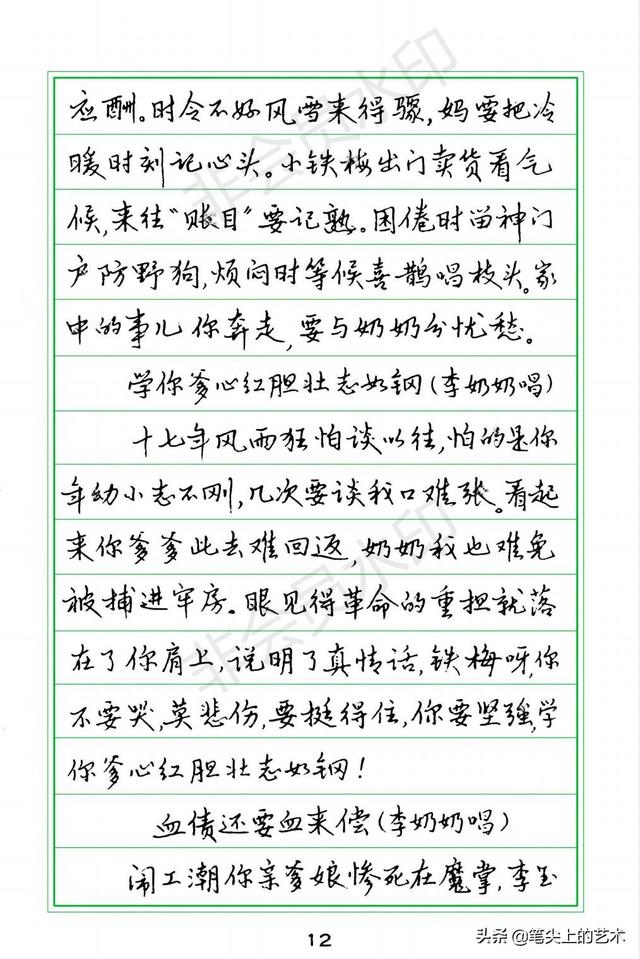 应酬。时令不好风雪来得骤,妈要把冷
暖时刻记心头。小铁梅出门卖货看气
候,来往“账目”要记熟。困倦时留神门
户防野狗,烦闷时等候喜鹊唱枝头。家
中的事儿你奔走,要与奶奶分忧愁。
学你爹心红胆壮志如钢(李奶奶唱)
十七年风雨狂怕谈以往,怕的是你
年幼小志不刚,几次要谈我口难张。看起
来你爹爹此去难回返,奶奶我也难免
被捕进牢房。眼见得革命的重担就落
在了你肩上,说明了真情话,铁梅呀,你
不要哭,莫悲伤,要挺得住,你要坚强,学
你爹心红胆壮志如钢!
血债还要血来偿(李奶奶唱)
闹工潮你亲爹娘惨死在魔掌,李玉
12
头条@笔尖上的艺术
非会员水印
非会员水印